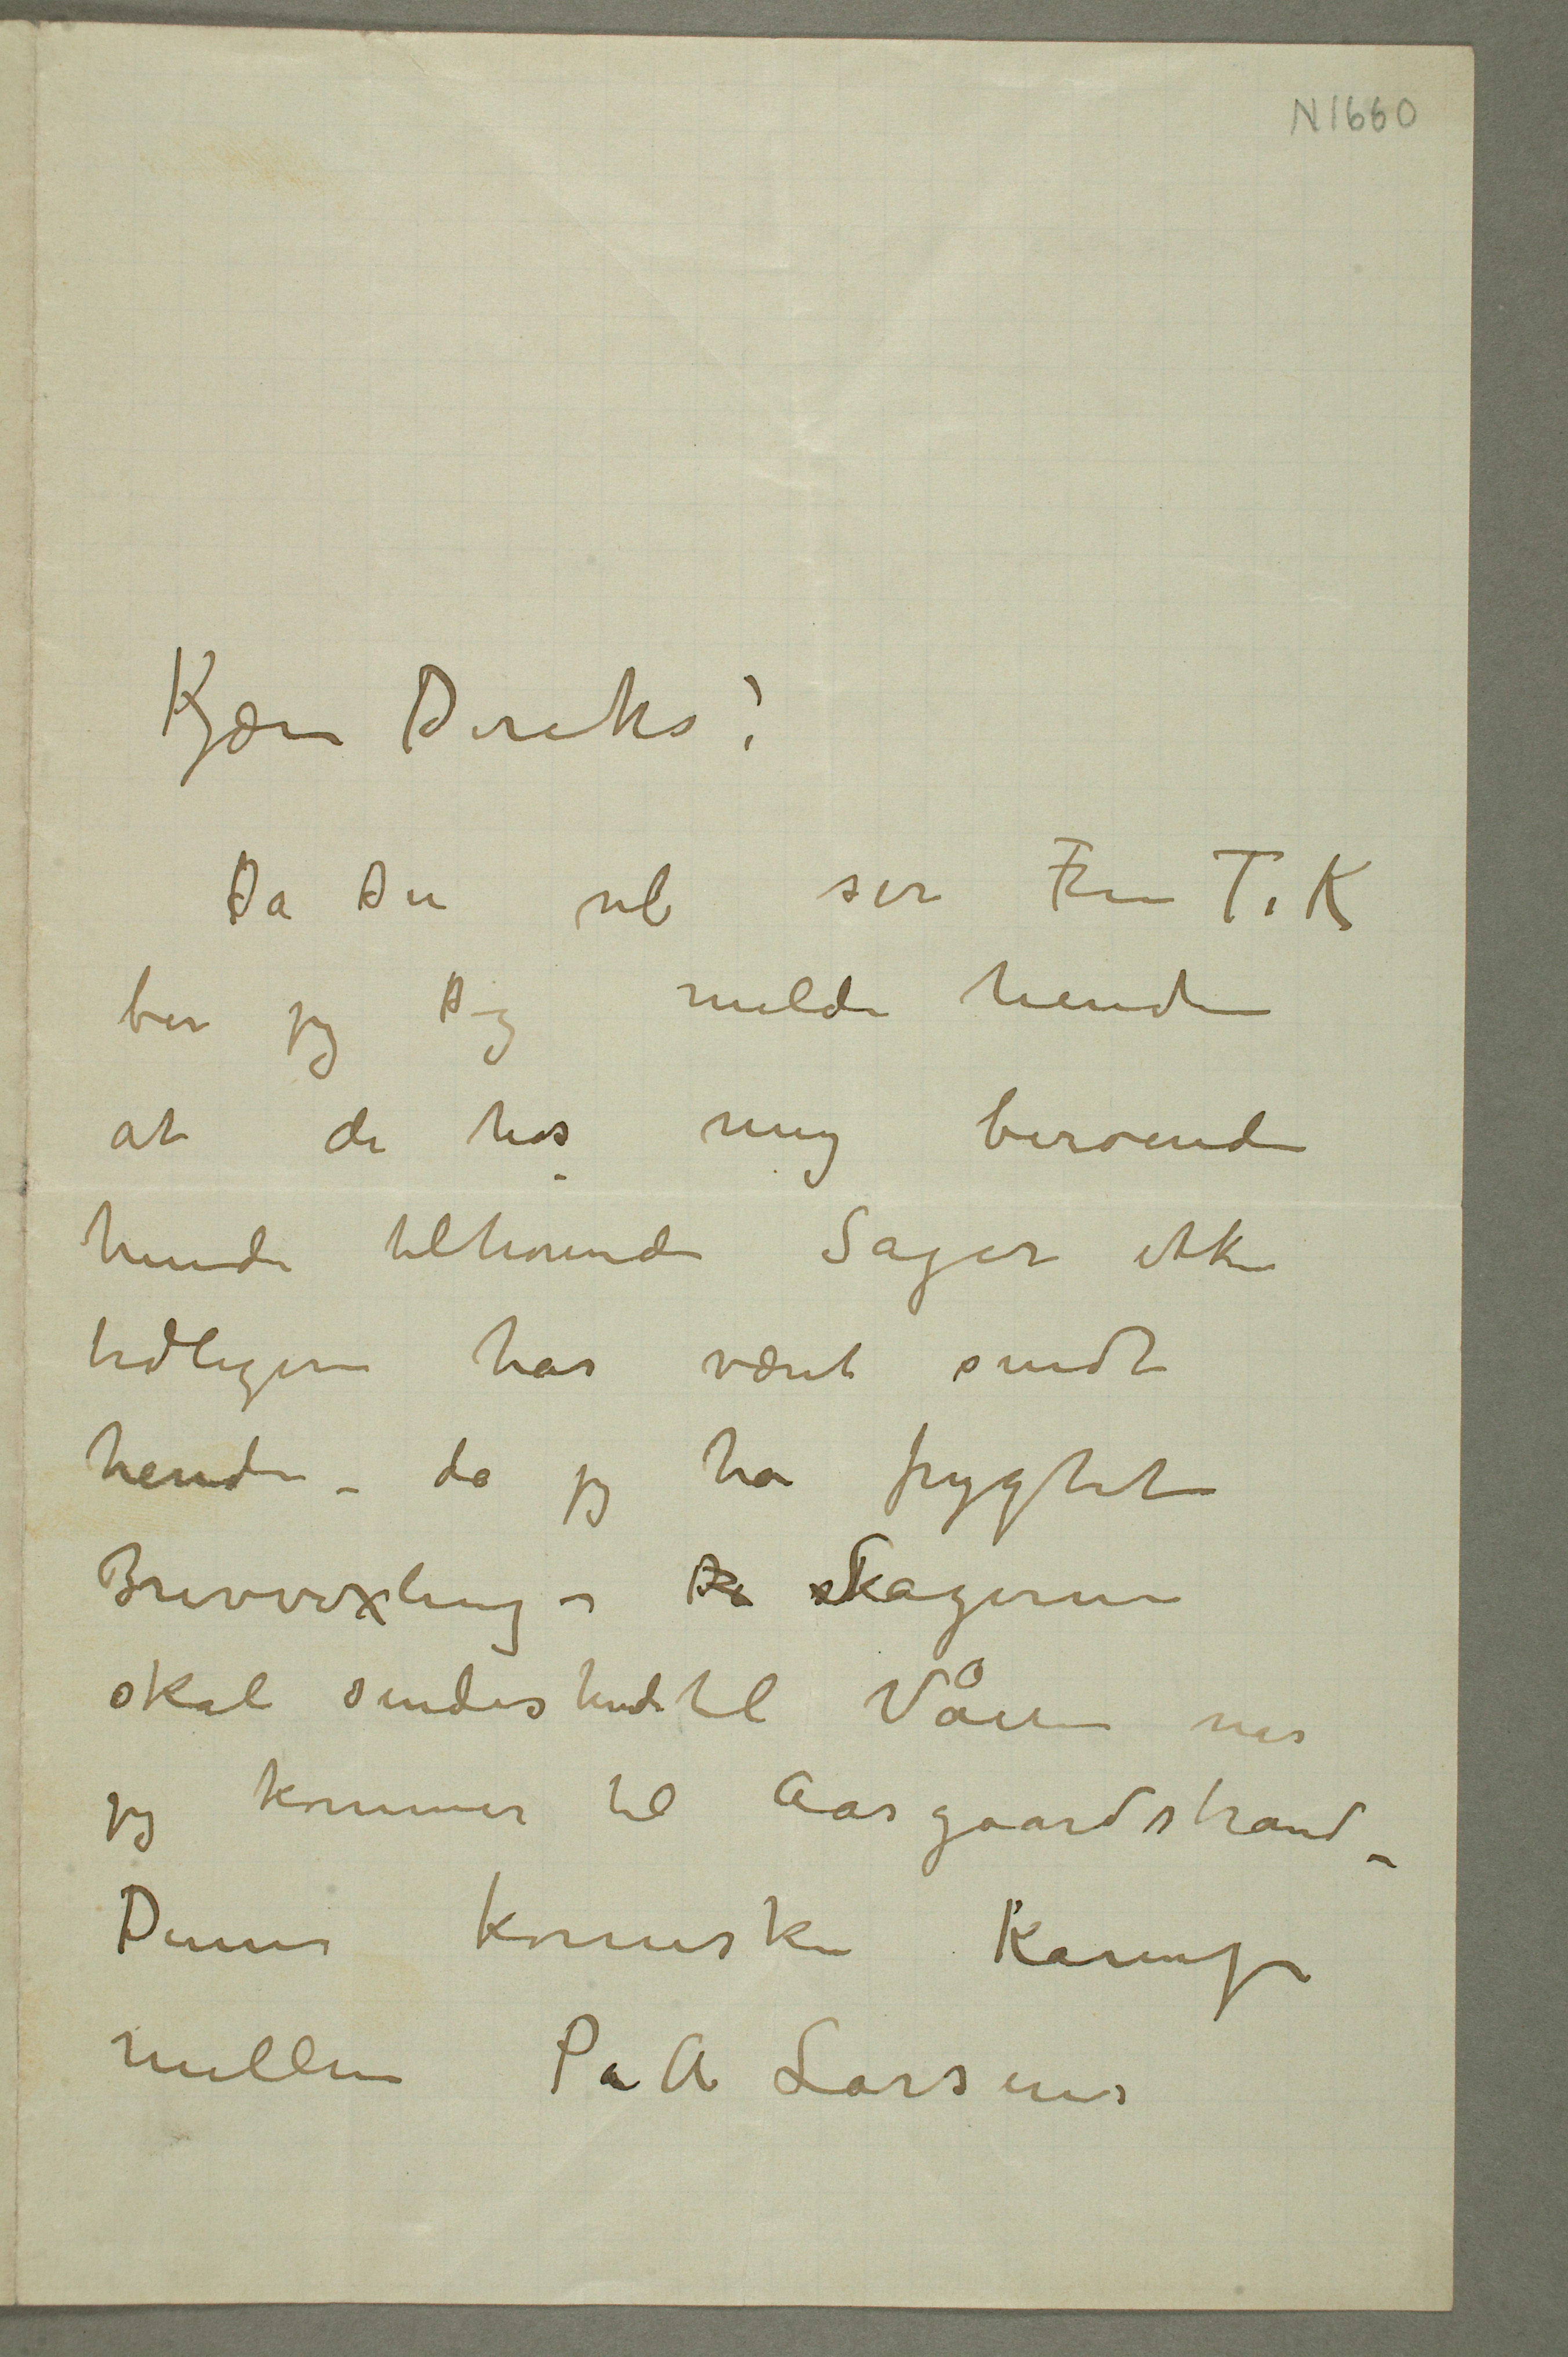 N 1660
Kjære Diriks!
Da Du vel ser Frk T. K
ber jeg Dig melde hende
at de hos mig beroende
hende tilhørende Sager ikke
tidligere har været sendt
hende – da jeg har frygtet
Brevvexling –
skal sendes hende til Våren når
jeg kommer til Aasgaardstrand –
Denne komiske Kamp
mellem P. A Larsens